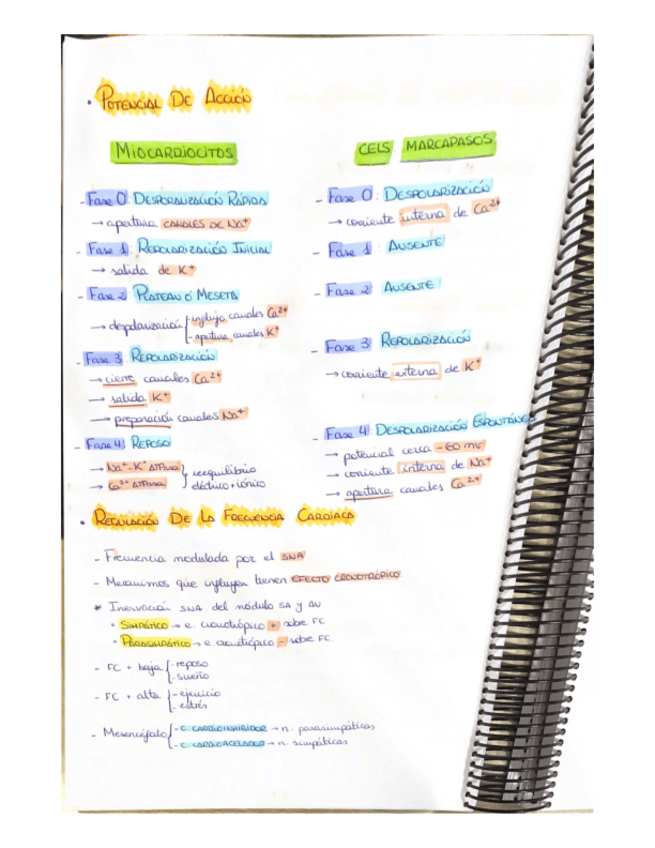 · POTENCIAL DE ACCIÓN
MIOCARDIOCITOS
- Fase 0: DESPOLARIZACIÓN RÁPIDA
→ apertura CANALES DE Na+
- Fase 1: REPOLARIZACIÓN INICIAL
→ salida de K+
- Fase 2: PLATEAU O MESETA
→ despolarización { - influjo canales Ca2+
- apertura canales K+
- Fase 3: REPOLARIZACIÓN
→ cierre canales Ca2+
→ salida K+
→ preparación canales Na+
- Fase 4: REPOSO
→ Na+-K+ ATPasa } reequilibrio
→ Ca2+ ATPasa } eléctrico + iónico
CELS MARCAPASOS
- Fase 0: DESPOLARIZACIÓN
→ corriente interna de Ca2+
- Fase 1: AUSENTE
- Fase 2: AUSENTE
- Fase 3: REPOLARIZACIÓN
→ corriente externa de K+
- Fase 4: DESPOLARIZACIÓN ESPONTÁNEA
→ potencial cerca -60 mV
→ corriente interna de Na+
→ apertura canales Ca2+
· REGULACIÓN DE LA FRECUENCIA CARDIACA
- Frecuencia modulada por el SNA
- Mecanismos que influyen tienen EFECTO CRONOTRÓPICO
* Inervación SNA del nódulo SA y AV
· SIMPÁTICO → e. cronotrópico + sobre FC
· PARASIMPÁTICO → e. cronotrópico - sobre FC
- FC + baja { - reposo
- sueño
- FC + alta { - ejercicio
- estrés
- Mesencéfalo { - C. CARDIOINHIBIDOR → n. parasimpáticas
- C. CARDIOACELERADOR → n. simpáticas